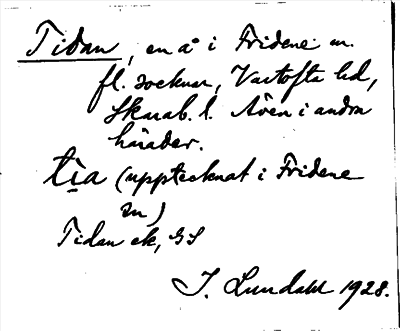 Tidan, en å i Fridene m.
fl. socknar, Vartofta hd,
Skarab. l. Även i andra
härader.
tìa (upptecknat i Fridene
sn)
Tidan ek, GS
J. Lundahl 1928.